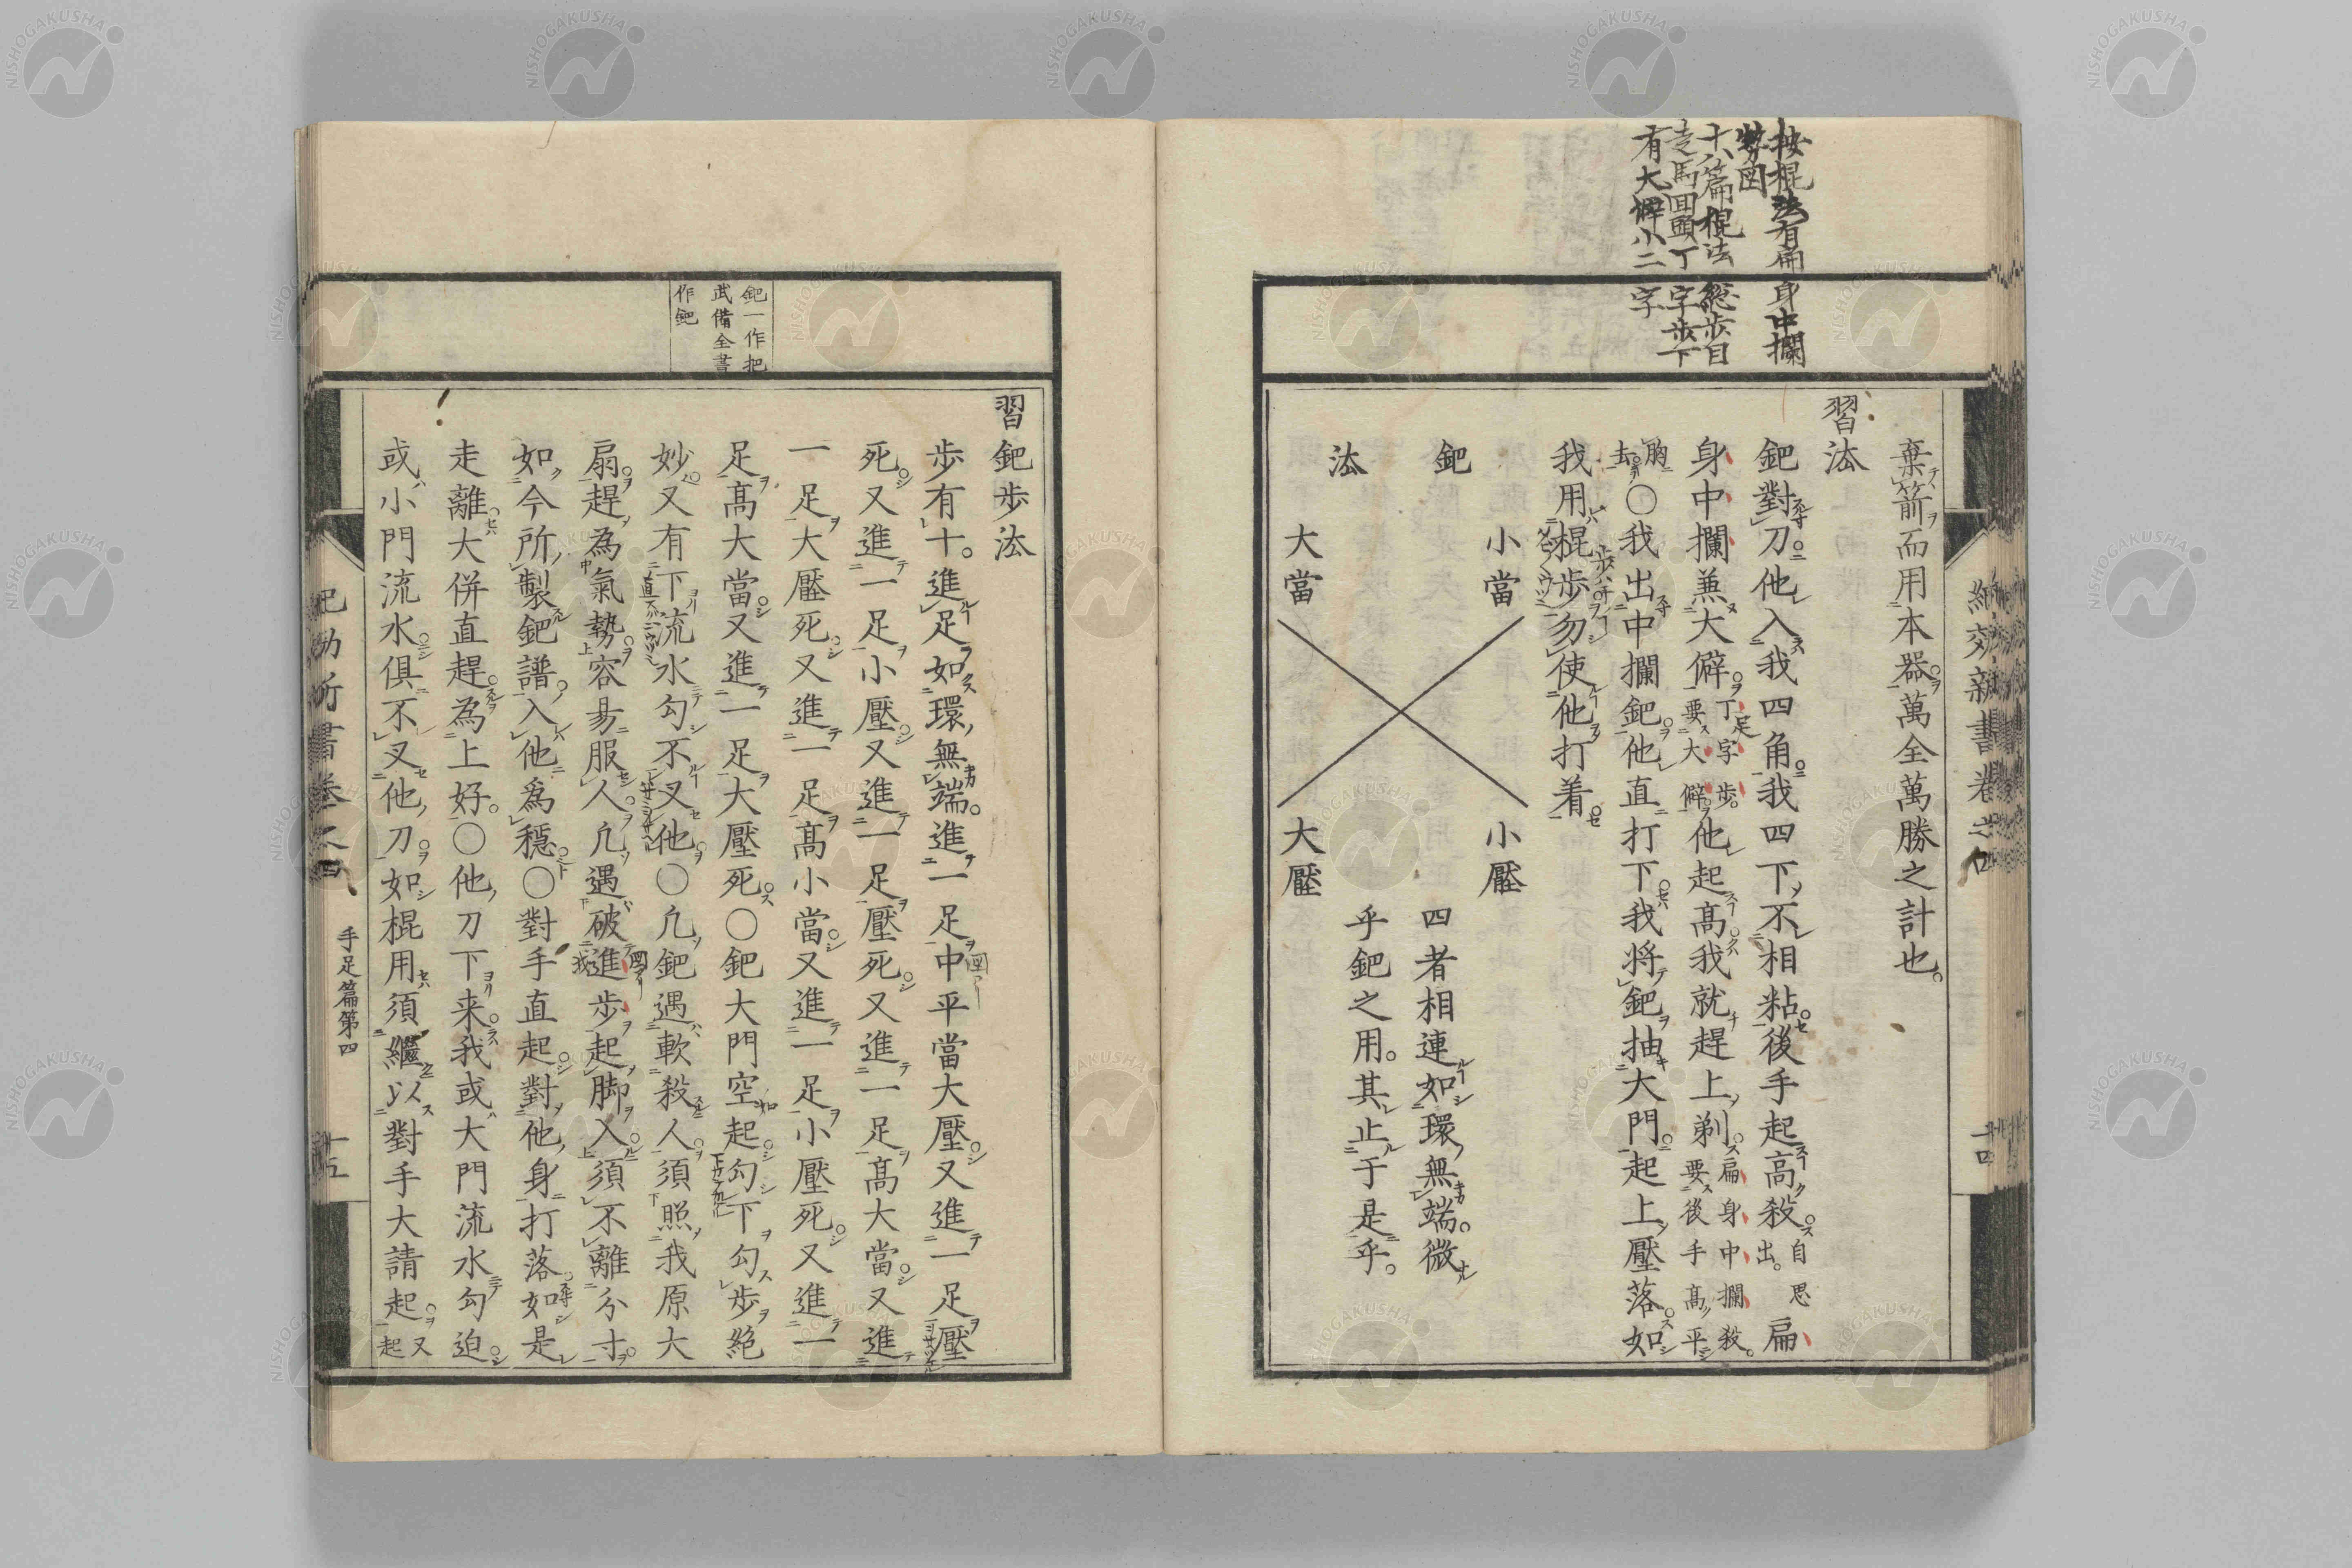 按棍法有扁身中欄
勢図
十八篇棍法総歩目
走馬回頭丁字歩下
有大僻小二字
棄箭而用本器萬全萬勝之計也。
習法
鈀對刀他入我四角我四下不相粘後手起高殺出。自思扁
身中欄兼大僻要大僻丁字歩。他起高我就趕上剃要後手高平扁身中欄殺。
胸去○我出中欄鈀他直打下我將鈀抽大門起上壓落如
我用棍歩勿使他打着
小當
小壓
鈀
法
大當
大壓
四者相連如環無端。微
乎鈀之用。其止于是乎。
紀效新書卷之四
十四
鈀一作把
武備全書
作鈀
習鈀步法
歩有十。進足如環無端。進一足中平當大壓又進一足壓
死又進一足小壓又進一足壓死又進一足高大當又進
一足大壓死又進一足高小當又進一足小壓死又進一
足高大當又進一足大壓死○鈀大門空起勾下勾步絕
妙又有下流水勾不叉他○凢鈀遇軟殺人須照我原大
扇趕為氣勢容易服人凢遇破進步起脚入須不離分寸
如今所製鈀譜入他為穩○對手直起對他身打落如是
走離大併直趕為上好。○他刀下来我或大門流水勾迫
或小門流水俱不叉他刀如棍用須繼以對手大請起又起
紀効新書卷之四
手足篇第四
十五